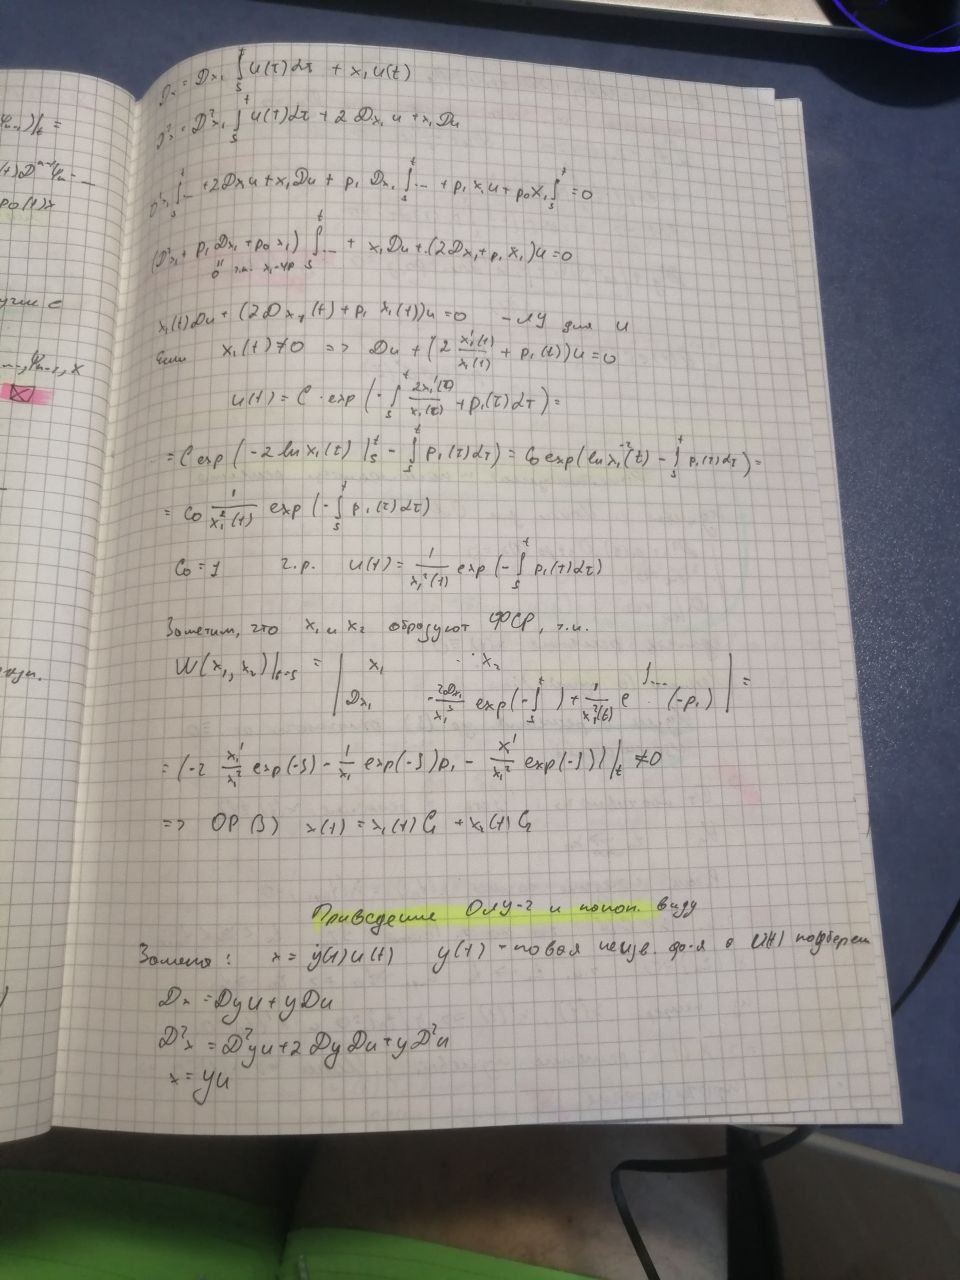 Dx = Dx₁ ∫ₛᵗ u(τ)dτ + x₁u(t)
D²x = D²x₁ ∫ₛᵗ u(τ)dτ + 2Dx₁u + x₁Du
D²x₁ ∫ₛᵗ ... + 2Dx₁u + x₁Du + p₁Dx₁ ∫ₛᵗ ... + p₁x₁u + p₀x₁ ∫ₛᵗ = 0
(D²x₁ + p₁Dx₁ + p₀x₁) ∫ₛᵗ ... + x₁Du + (2Dx₁ + p₁x₁)u = 0
0 т.к. x₁-чр
x₁(t)Du + (2Dx₁(t) + p₁x₁(t))u = 0 - ЛУ для u
Если x₁(t) ≠ 0 => Du + (2 x₁'(t)/x₁(t) + p₁(t))u = 0
u(t) = C · exp(-∫ₛᵗ 2x₁'(τ)/x₁(τ) + p₁(τ)dτ) =
= C exp(-2 ln x₁(τ)|ₛᵗ - ∫ₛᵗ p₁(τ)dτ) = C₀ exp(ln x₁⁻²(t) - ∫ₛᵗ p₁(τ)dτ) =
= C₀ 1/x₁²(t) exp(-∫ₛᵗ p₁(τ)dτ)
C₀ = 1 ч.р. u(t) = 1/x₁²(t) exp(-∫ₛᵗ p₁(τ)dτ)
Заметим, что x₁ и x₂ образуют ФСР, т.к.
W(x₁, x₂)|ₜ₌ₛ = | x₁ x₂ |
| Dx₁ -2Dx₁/x₁³ exp(-∫ₛᵗ) + 1/x₁²(t) e^∫... · (-p₁) | =
= (-2 x₁'/x₁² exp(-∫) - 1/x₁ exp(-∫)p₁ - x'/x₁² exp(-∫))|ₜ ≠ 0
=> ОР (3) x(t) = x₁(t)C₁ + x₂(t)C₂
Приведение ОЛУ-2 к канон. виду
Замена: x = y(t)u(t) y(t) - новая неизв. ф-я а u(t) подберем
Dx = Dyu + yDu
D²x = D²yu + 2DyDu + yD²u
x = yu